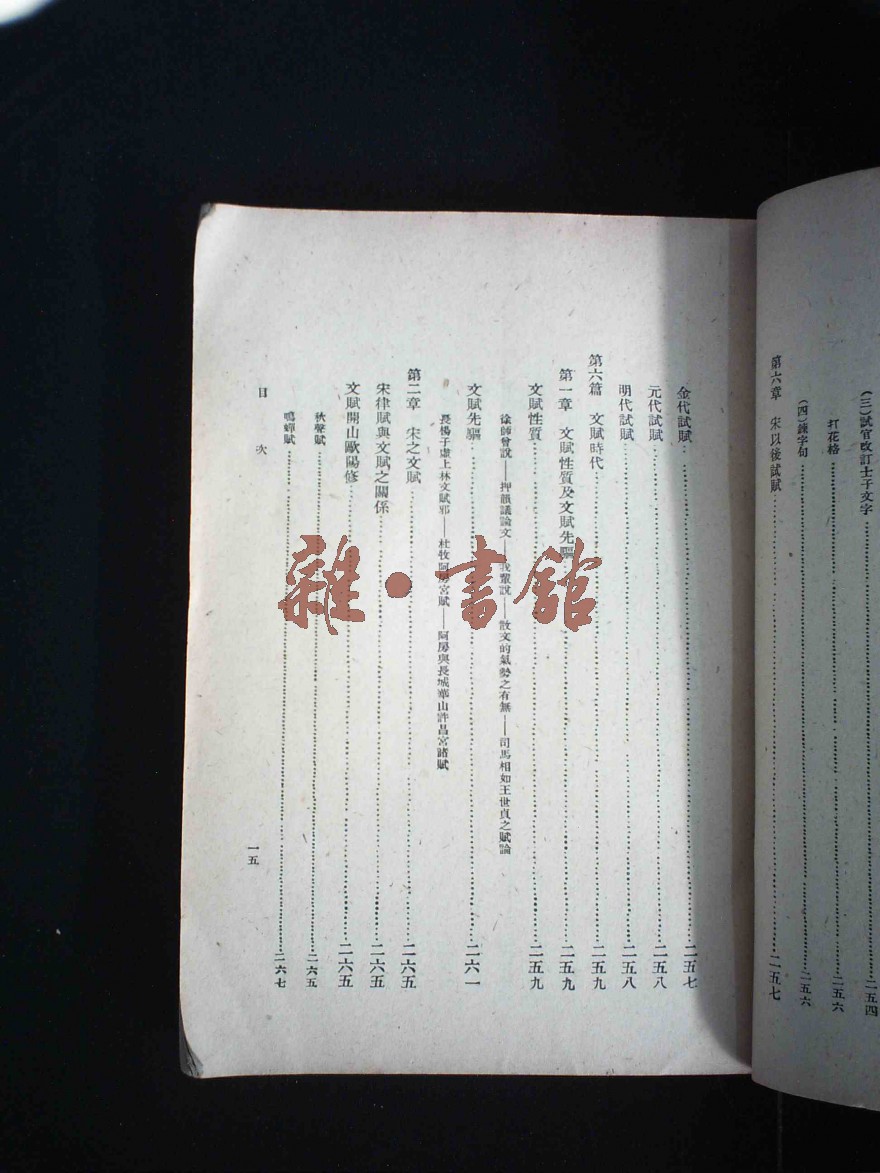 (三)試官改訂士子文字……二五四
打花格……二五六
(四)諫字句……二五六
第六章 宋以後試賦……二五七
金代試賦……二五七
元代試賦……二五八
明代試賦……二五八
第六篇 文賦時代……二五九
第一章 文賦性質及文賦先驅……二五九
文賦性質……二五九
徐師曾說——押韻議論文——我輩說——散文的氣勢之有無——司馬相如王世貞之賦論
文賦先驅……二六一
長楊子虛上林文賦邪——杜牧阿房宮賦——阿房與長城華山許昌宮諸賦
第二章 宋之文賦……二六五
宋律賦與文賦之關係……二六五
文賦開山歐陽修……二六五
秋聲賦……二六五
鳴蟬賦……二六七
目次
一五
雜·書館